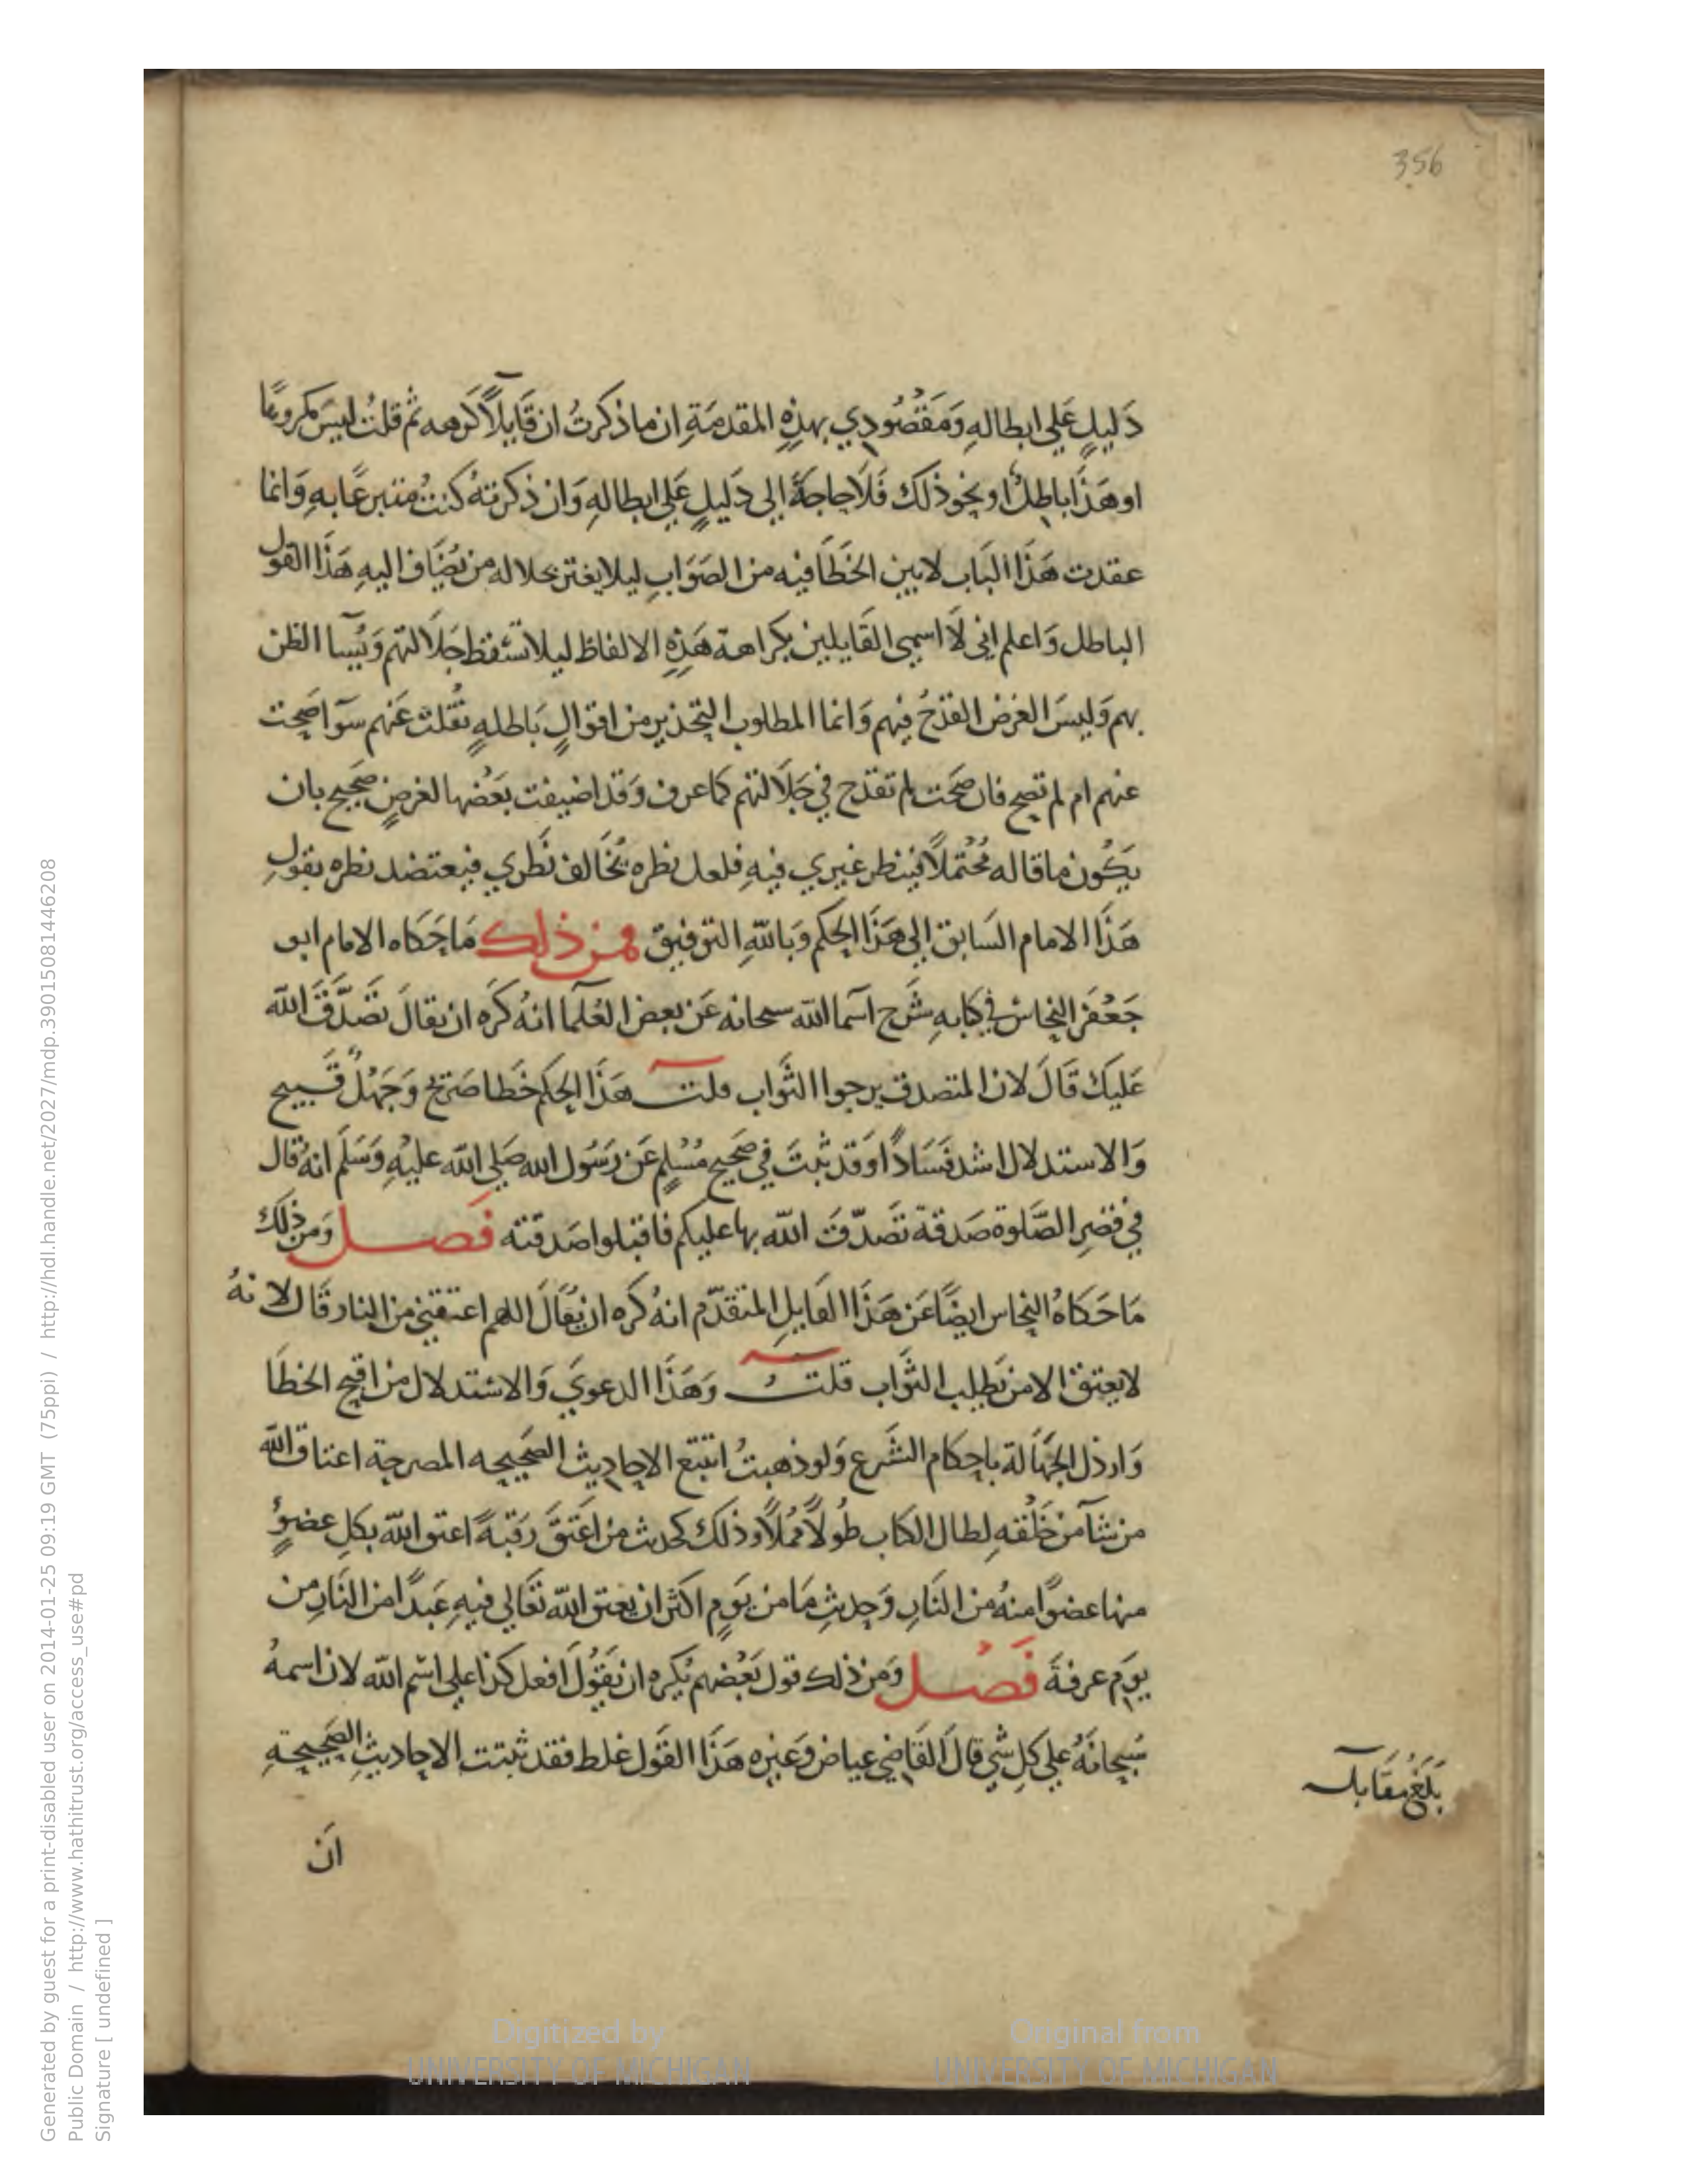 356
دَليلٍ عَلى ابطالهِ وَمَقْصُودي بهذِهِ المقدمَةِ ان ما ذكرتُ ان قَايلاً كَرهه ثم قلتُ ليسَ مكروهًا
او هَذَا باطلٌ او نحو ذلك فَلَا حاجةَ الى دَليلٍ عَلى ابطالهِ وَان ذكرتهُ كنتُ متبرعًا بهِ وَانما
عقدت هَذَا البَاب لابين الخَطَا فيه من الصَوَابِ ليلا يغتر بجلاله من يُضَاف اليهِ هَذَا القول
الباطل وَاعلم انى لَا اسمى القَايلين بكراهة هَذِهِ الالفاظ ليلا تسقط جَلَالتهم وَيُسآ الظن
بهم وَليسَ الغرض القدحُ فيهم وَانما المطلوب التحذير من اقوَالٍ بَاطلهٍ نُقلت عَنهم سوآ اصَحت
عنهم ام لم تصح فان صَحَت لم تقدح في جَلَالتهم كما عرف وَقد اضيفت بَعْضها لغرضٍ صَحيح بان
يَكُون ما قاله مُحْتملاً فينظر غيري فيهِ فلعل نظره يُخَالف نَظري فيعتضد نظره بقولِ
هَذَا الامام السَابق الى هَذَا الحكم وَباللّهِ التوفيق فمن ذلك مَا حَكَاه الامام ابو
جَعْفَر النحاسُ في كتابهِ شَرح اسمآ اللّه سبحانه عَن بعض العُلمآ انهُ كَرَه ان يقالَ تَصَدَّقَ اللّه
عَليكَ قَالَ لان المتصدق يرجوا الثَواب قلت هَذَا الحكم خَطا صَريح وَجَهْلٌ قَبيح
وَالاستدلال اشد فَسَادًا وَقد ثبتَ في صَحيح مُسْلمٍ عَن رَسُول الله صَلى اللّه عليْهِ وَسَلَم انهُ قال
في قصرِ الصَّلوة صَدقة تَصَدّقَ اللّه بها عليكم فاقبلوا صَدقته فصل وَمن ذلك
مَا حَكَاهُ النحاس ايضًا عَن هَذَا القايلِ المتقدّم انهُ كره ان يُقَالَ اللهم اعتقني من النار قَال لانهُ
لا يعتق الا من يَطلب الثَواب قلتُ وَهَذَا الدعويَ وَالاستدلال من اقبح الخطَا
وَارذل الجَهَالة باحكام الشَرع وَلو ذهبتُ اتتبع الاحاديث الصَحيحه المصرحة اعتاق اللّه
من شآ من خَلْقهِ لطال الكتاب طُولاً مُملاً وذلك كحديث من اعتَقَ رَقبةً اعتق اللّه بكلِ عضوٍ
منها عضوًا منهُ من النَارِ وَحديثِ مَا من يَومٍ اكثر ان يعتق اللّه تعَالى فيهِ عَبدًا من النَارِ من
يومِ عرفةَ فَصْل وَمن ذلك قول بَعْضهم يُكره ان يَقوُلَ افعل كذا على اسْم اللّه لان اسمهُ
سُبحانَهُ عَلى كلِ شي قالَ القَاضي عياض وَغيره هَذَا القَول غلط فقد ثبتت الاحاديثِ الصَحيحةِ
بَلَغ مقَابله
انَ
Generated by guest for a print-disabled user on 2014-01-25 09:19 GMT (75ppi) / http://hdl.handle.net/2027/mdp.39015081446208
Public Domain / http://www.hathitrust.org/access_use#pd
Signature [ undefined ]
Digitized by
UNIVERSITY OF MICHIGAN
Original from
UNIVERSITY OF MICHIGAN